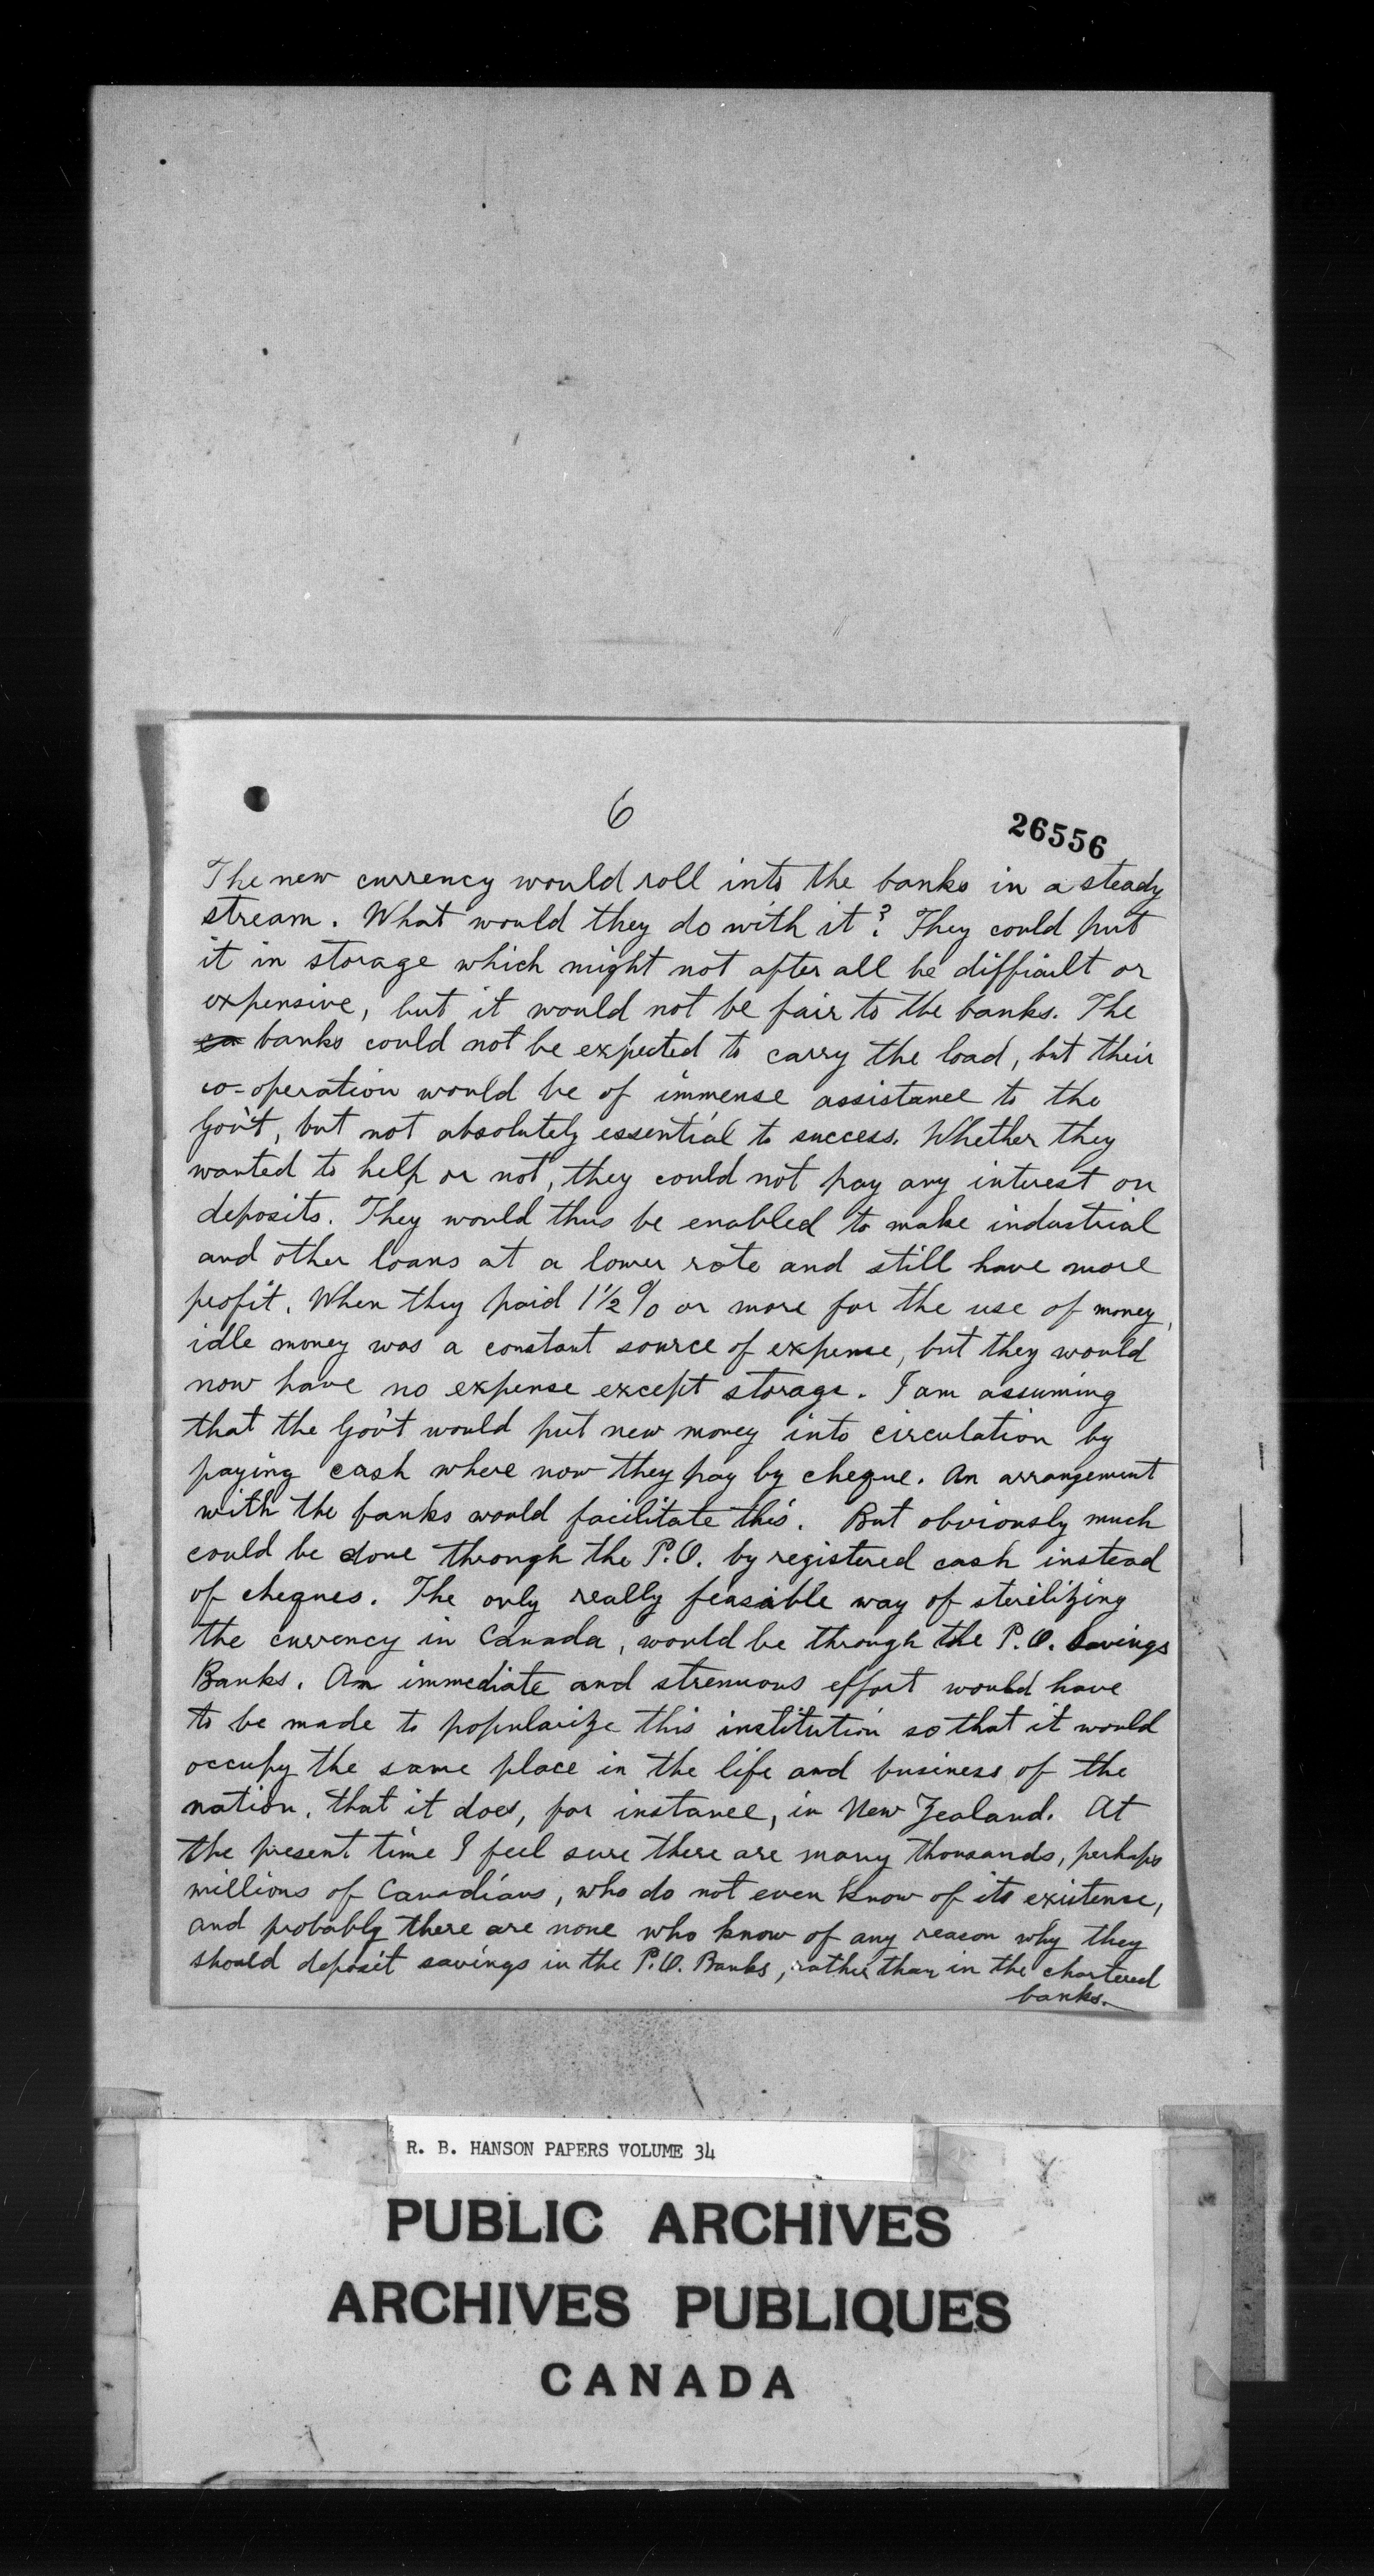 6
26556
The new currency would roll into the banks in a steady
stream. What would they do with it? They could put
it in storage which might not after all be difficult or
expensive, but it would not be fair to the banks. The
banks could not be expected to carry the load, but their
co-operation would be of immense assistance to the
Gov't, but not absolutely essential to success. Whether they
wanted to help or not, they could not pay any interest on
deposits. They would thus be enabled to make industrial
and other loans at a lower rate and still have more
profit. When they paid 1½% or more for the use of money,
idle money was a constant source of expense, but they would
now have no expense except storage. I am assuming
that the Gov't would put new money into circulation by
paying cash where now they pay by cheque. An arrangement
with the banks would facilitate this. But obviously much
could be done through the P.O. by registered cash instead
of cheques. The only really feasible way of sterilizing
the currency in Canada, would be through the P.O. Savings
Banks. An immediate and strenuous effort would have
to be made to popularize this institution so that it would
occupy the same place in the life and business of the
nation, that it does, for instance, in New Zealand. At
the present time I feel sure there are many thousands, perhaps
millions of Canadians, who do not even know of its existense,
and probably there are none who know of any reason why they
should deposit savings in the P.O. Banks, rather than in the chartered
banks.
R. B. HANSON PAPERS VOLUME 34
PUBLIC ARCHIVES
ARCHIVES PUBLIQUES
CANADA